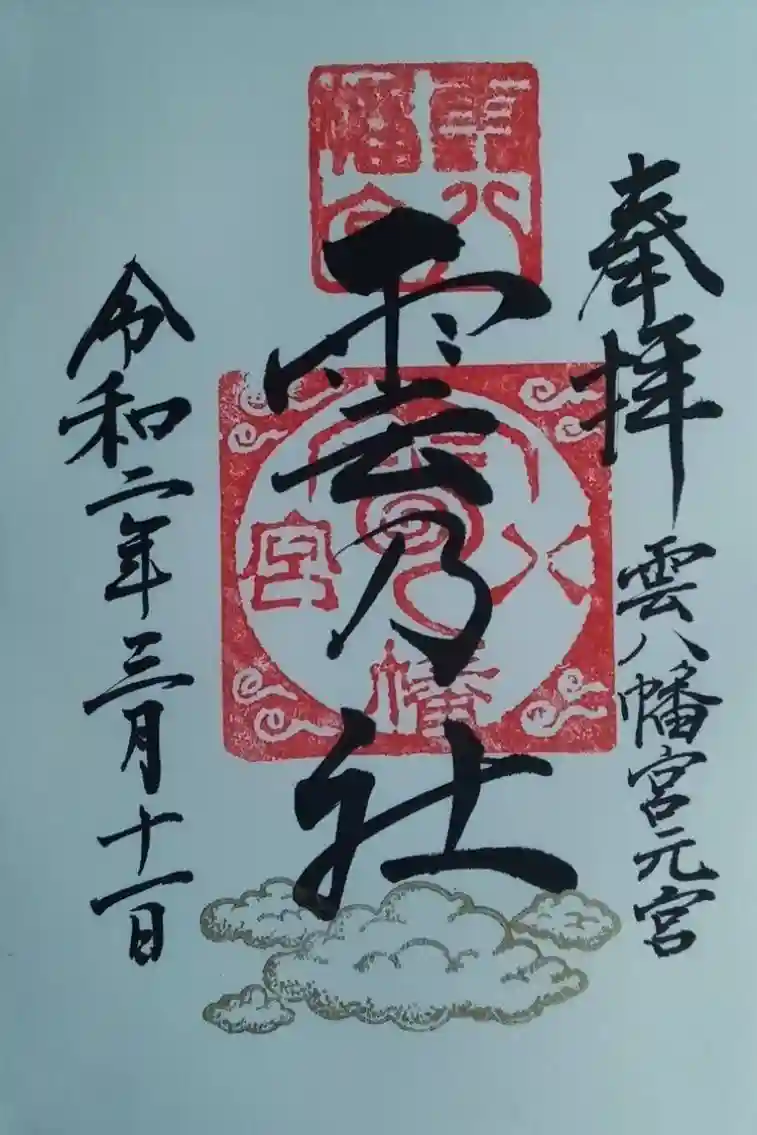 奉拝
雲八幡宮元宮
雲八幡宮
雲乃社
雲八幡宮
令和二年三月十一日